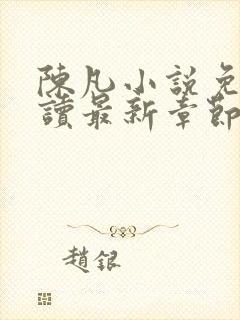 陳凡小說免
讀最新章節
趙銀